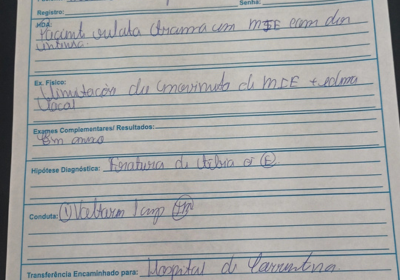 Registro: Senha:
HDA:
Paciente relata trauma em MIE com dor
intensa.
Ex. Físico:
Limitação de movimento de MIE + edema
local
Exames Complementares/ Resultados:
Em anexo
Hipótese Diagnóstica: Fratura de tíbia E
Conduta: ① Voltaren 1 amp IM
Transferência Encaminhado para: Hospital de